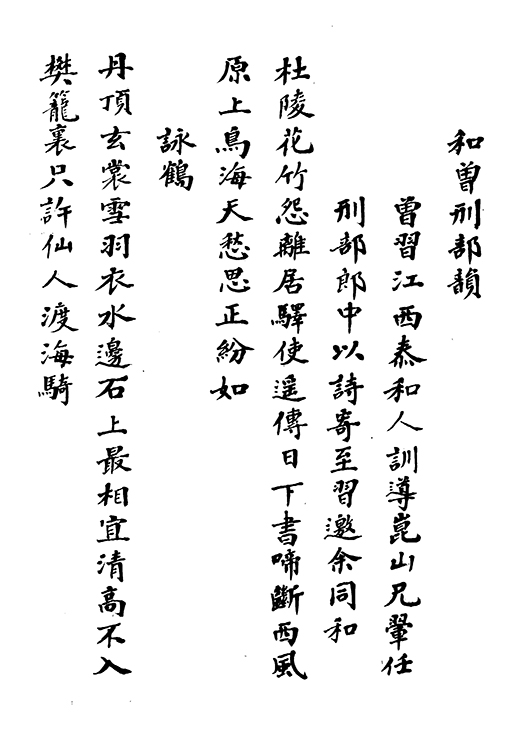 和曽刑部韻
曽習江西泰和人訓導崑山兄翬任
刑部郎中以詩寄至習邀余同和
杜陵花竹怨離居驛使遥傳日下書啼斷西風
原上鳥海天愁思正紛如
詠鶴
丹頂玄裳雪羽衣水邊石上最相宜清高不入
樊籠裏只許仙人渡海騎